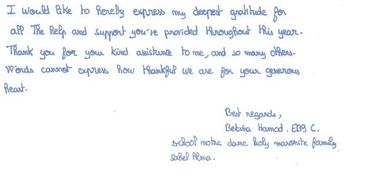 I would like to hereby express my deepest gratitude for
all The help and support you've provided Throughout this year.
Thank you for your kind assistance to me, and so many others.
Words cannot express how thankful we are for your generous
heart.
Best regards,
Hamod. EB9 C.
school notre dame holy maronite family
sahel Alma.